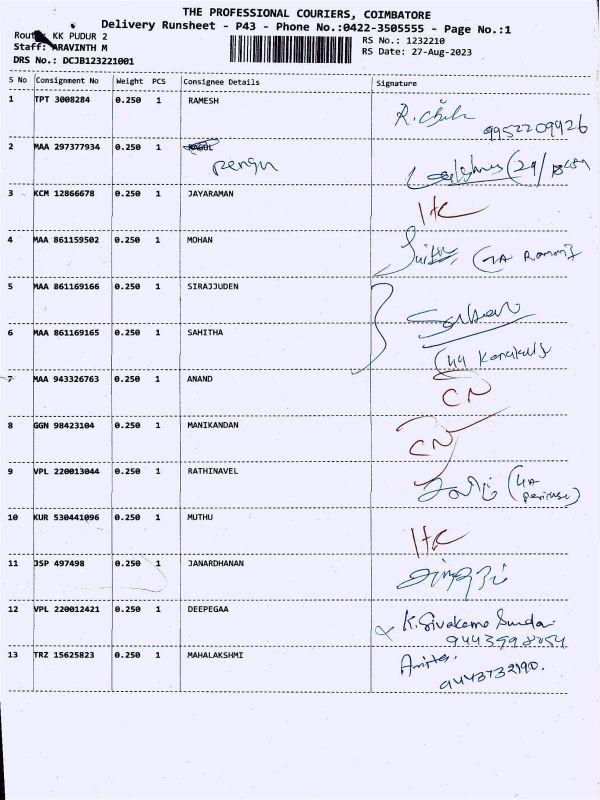 THE PROFESSIONAL COURIERS, COIMBATORE
Delivery Runsheet - P43 - Phone No.:0422-3505555 - Page No.:1
Route: KK PUDUR 2
RS No.: 1232210
Staff: ARAVINTH M
RS Date: 27-Aug-2023
DRS No.: DCJB123221001
S No Consignment No Weight PCS Consignee Details Signature
1 TPT 3008284 0.250 1 RAMESH
9952209926
2 MAA 297377934 0.250 1
3 KCM 12866678 0.250 1 JAYARAMAN
4 MAA 861159502 0.250 1 MOHAN
5 MAA 861169166 0.250 1 SIRAJJUDEN
6 MAA 861169165 0.250 1 SAHITHA
7 MAA 943326763 0.250 1 ANAND CN
8 GGN 98423104 0.250 1 MANIKANDAN CN
9 VPL 220013044 0.250 1 RATHINAVEL
10 KUR 530441096 0.250 1 MUTHU
11 JSP 497498 0.250 1 JANARDHANAN
12 VPL 220012421 0.250 1 DEEPEGAA K. Sivakama Sunda
13 TRZ 15625823 0.250 1 MAHALAKSHMI Anitha.
9443732190.